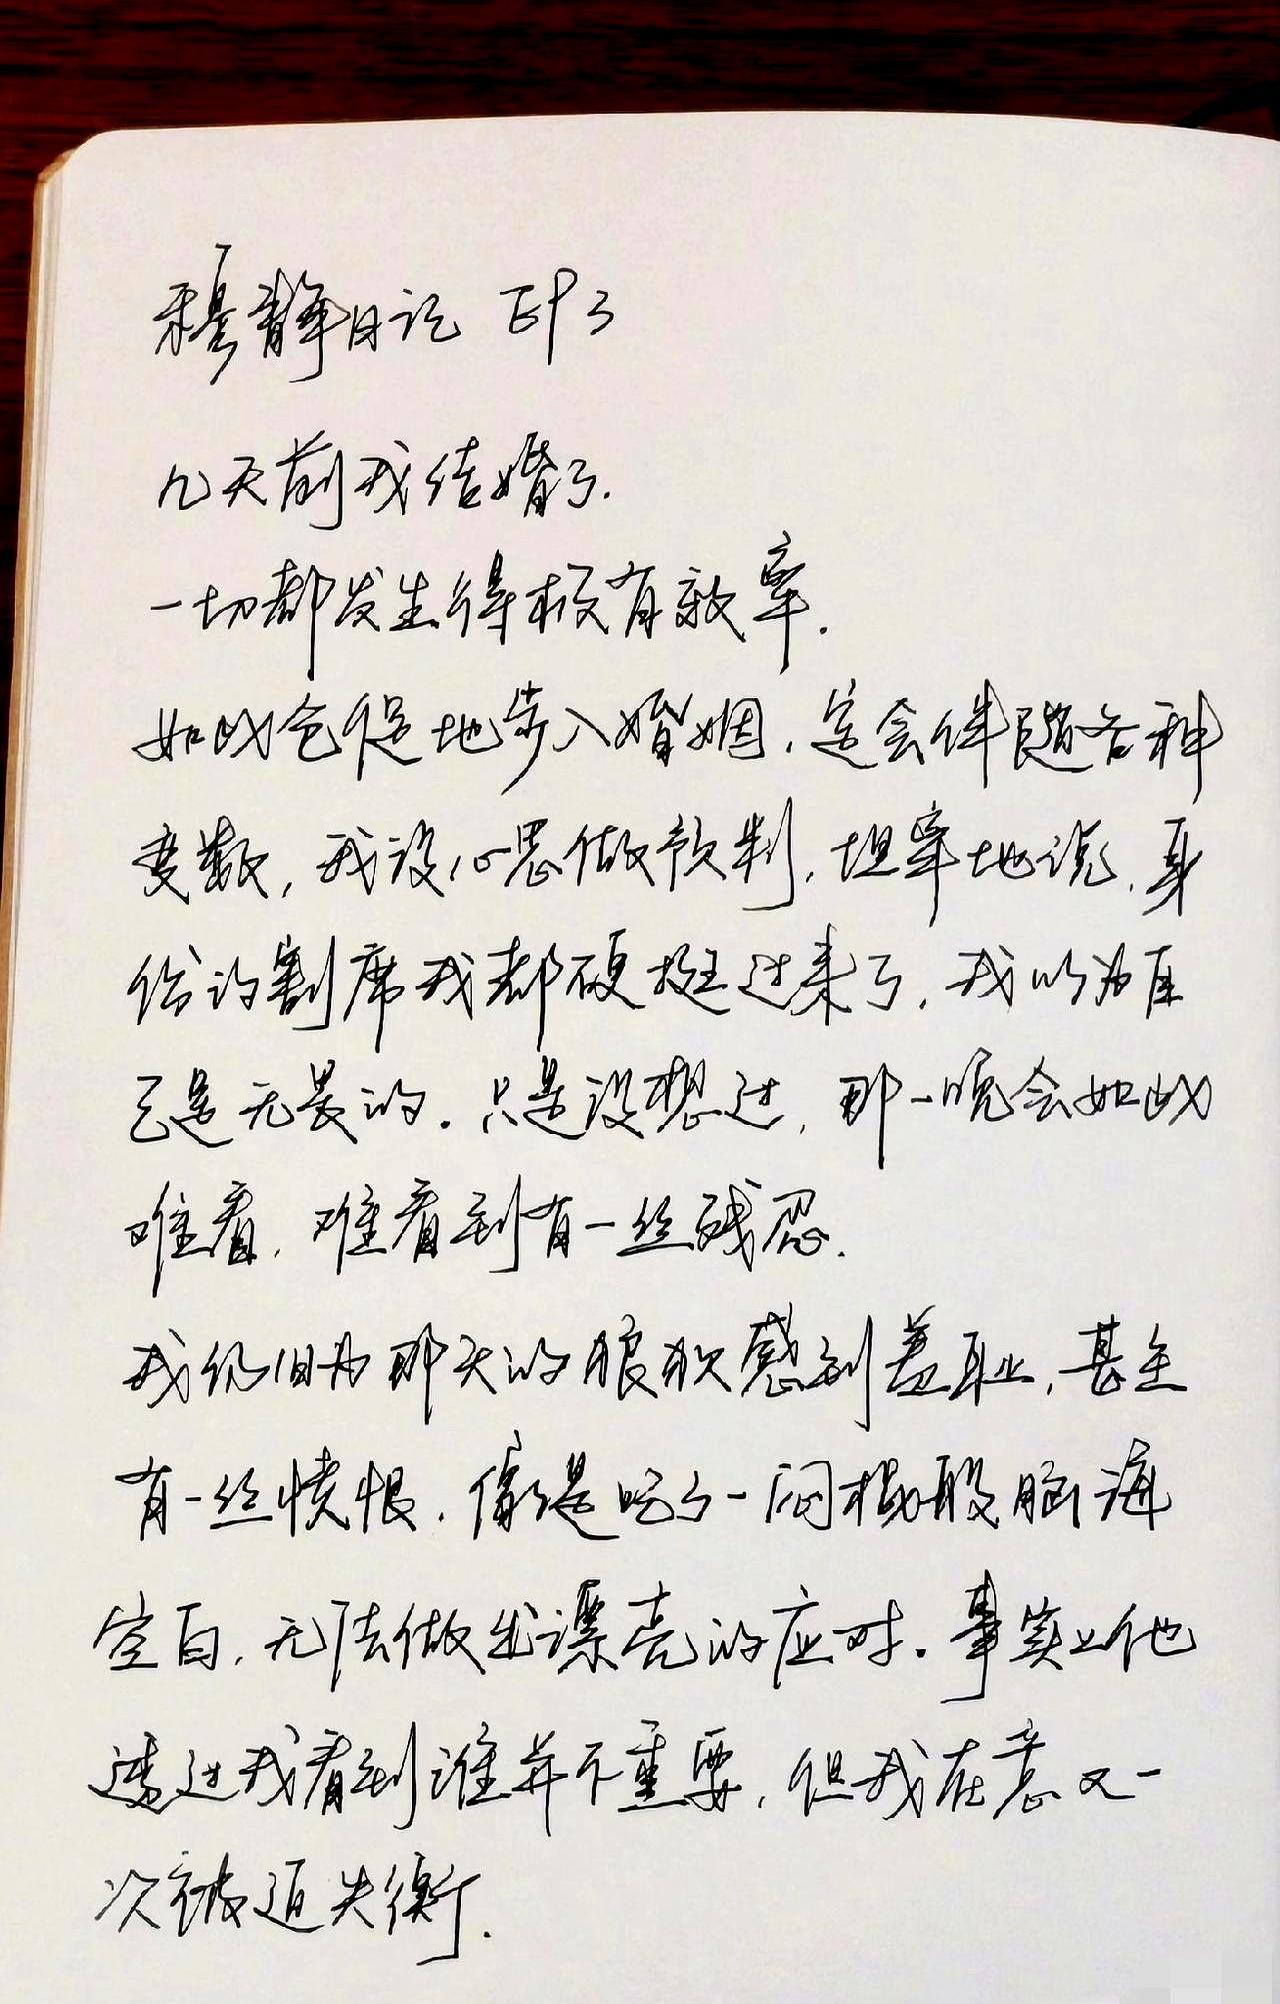 穆静日记 EP3
几天前我结婚了.
一切都发生得极有效率.
如此仓促地步入婚姻,定会伴随各种
变数,我没心思做预判,坦率地说,身
份的割席我都硬挺过来了,我以为自
己是无畏的.只是没想过,那一晚会如此
难看,难看到有一丝残忍.
我仍旧为那天的狼狈感到羞耻,甚至
有一丝愤恨.像是吃了一闷棍般脑海
空白,无法做出漂亮的应对.事实上他
透过我看到谁并不重要,但我在意又一
次被迫失衡.